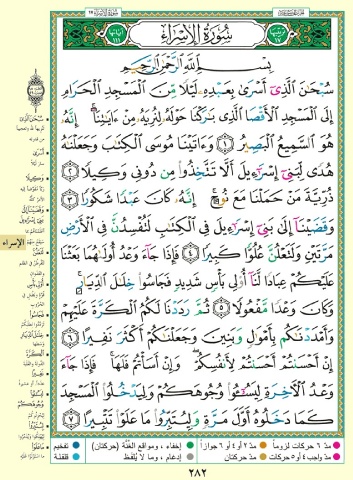 سُورَةُ الإِسْرَاءِ
بِسْمِ اللَّهِ الرَّحْمَٰنِ الرَّحِيمِ
سُبْحَٰنَ الَّذِي أَسْرَىٰ بِعَبْدِهِ لَيْلًا مِّنَ الْمَسْجِدِ الْحَرَامِ
إِلَى الْمَسْجِدِ الْأَقْصَا الَّذِي بَٰرَكْنَا حَوْلَهُ لِنُرِيَهُ مِنْ ءَايَٰتِنَا إِنَّهُ
هُوَ السَّمِيعُ الْبَصِيرُ ١ وَءَاتَيْنَا مُوسَى الْكِتَٰبَ وَجَعَلْنَٰهُ
هُدًى لِّبَنِي إِسْرَٰءِيلَ أَلَّا تَتَّخِذُوا مِن دُونِي وَكِيلًا ٢
ذُرِّيَّةَ مَنْ حَمَلْنَا مَعَ نُوحٍ إِنَّهُ كَانَ عَبْدًا شَكُورًا ٣
وَقَضَيْنَا إِلَىٰ بَنِي إِسْرَٰءِيلَ فِي الْكِتَٰبِ لَتُفْسِدُنَّ فِي الْأَرْضِ
مَرَّتَيْنِ وَلَتَعْلُنَّ عُلُوًّا كَبِيرًا ٤ فَإِذَا جَاءَ وَعْدُ أُولَىٰهُمَا بَعَثْنَا
عَلَيْكُمْ عِبَادًا لَّنَا أُولِي بَأْسٍ شَدِيدٍ فَجَاسُوا خِلَٰلَ الدِّيَارِ
وَكَانَ وَعْدًا مَّفْعُولًا ٥ ثُمَّ رَدَدْنَا لَكُمُ الْكَرَّةَ عَلَيْهِمْ
وَأَمْدَدْنَٰكُم بِأَمْوَٰلٍ وَبَنِينَ وَجَعَلْنَٰكُمْ أَكْثَرَ نَفِيرًا ٦
إِنْ أَحْسَنتُمْ أَحْسَنتُمْ لِأَنفُسِكُمْ وَإِنْ أَسَأْتُمْ فَلَهَا فَإِذَا جَاءَ
وَعْدُ الْءَاخِرَةِ لِيَسُـُٔوا وُجُوهَكُمْ وَلِيَدْخُلُوا الْمَسْجِدَ
كَمَا دَخَلُوهُ أَوَّلَ مَرَّةٍ وَلِيُتَبِّرُوا مَا عَلَوْا تَتْبِيرًا ٧
الإسراء
مدّ ٦ حركات لزوماً مدّ ٢ أو ٤ أو ٦ جوازاً إخفاء، ومواقع الغُنَّة (حركتان) تفخيم
مدّ واجب ٤ أو ٥ حركات مدّ حركتان إدغام، وما لا يُلفَظ قلقلة
٢٨٢